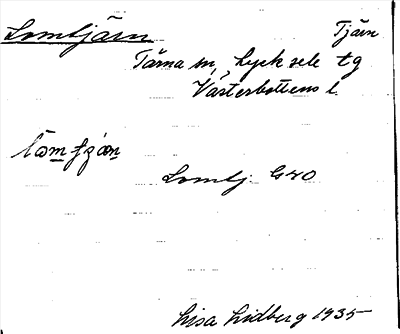 Lomtjärn Tjärn
Tärna sn, Lycksele tg
Västerbottens l.
Lomtj. G40
Lisa Lidberg 1935